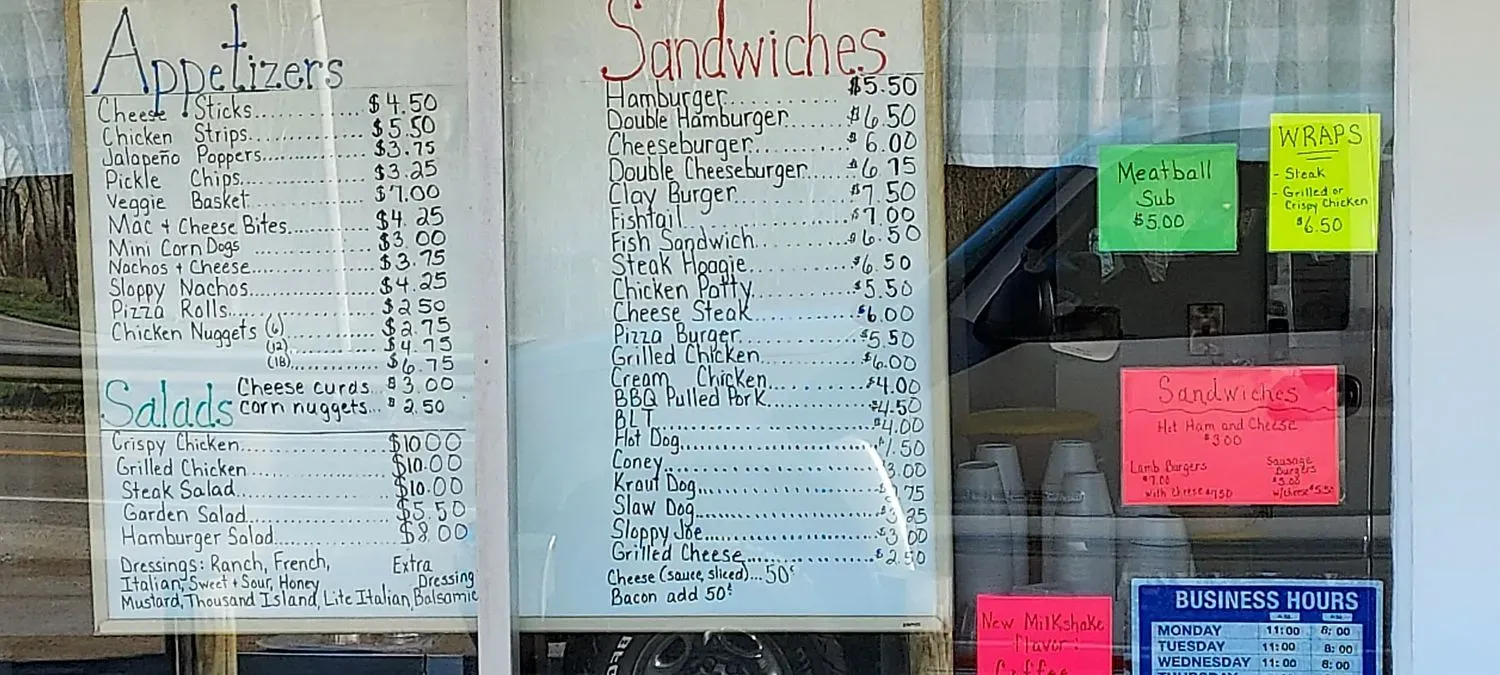 Appetizers
Cheese Sticks.............. $4.50
Chicken Strips.............. $5.50
Jalapeño Poppers.............. $3.75
Pickle Chips.............. $3.25
Veggie Basket.............. $7.00
Mac + Cheese Bites.............. $4.25
Mini Corn Dogs .............. $3.00
Nachos + Cheese.............. $3.75
Sloppy Nachos.............. $4.25
Pizza Rolls.............. $2.50
Chicken Nuggets (6).............. $2.75
(12).............. $4.75
(18).............. $6.75
Cheese curds... $3.00
corn nuggets... $2.50
Salads
Crispy Chicken.............. $10.00
Grilled Chicken.............. $10.00
Steak Salad.............. $10.00
Garden Salad.............. $5.50
Hamburger Salad.............. $8.00
Dressings: Ranch, French,
Italian, Sweet + Sour, Honey
Mustard, Thousand Island, Lite Italian, Balsamic
Extra
Dressing
Sandwiches
Hamburger.............. $5.50
Double Hamburger.............. $6.50
Cheeseburger.............. $6.00
Double Cheeseburger.............. $6.75
Clay Burger.............. $7.50
Fishtail.............. $7.00
Fish Sandwich.............. $6.50
Steak Hoagie.............. $6.50
Chicken Patty.............. $5.50
Cheese Steak.............. $6.00
Pizza Burger.............. $5.50
Grilled Chicken.............. $6.00
Cream Chicken.............. $4.00
BBQ Pulled Pork.............. $4.50
BLT.............. $4.00
Hot Dog.............. $1.50
Coney.............. $3.00
Kraut Dog.............. .75
Slaw Dog.............. $3.25
Sloppy Joe.............. $3.00
Grilled Cheese.............. $2.50
Cheese (sauce, sliced)... 50¢
Bacon add 50¢
Meatball
Sub
$5.00
WRAPS
- Steak
- Grilled or
Crispy Chicken
$6.50
Sandwiches
Hot Ham and Cheese
$3.00
Lamb Burgers
$7.00
with cheese $7.50
Sausage
Burgers
$5.00
w/cheese $5.50
New Milkshake
flavor:
Coffee
BUSINESS HOURS
MONDAY 11:00 8:00
TUESDAY 11:00 8:00
WEDNESDAY 11:00 8:00